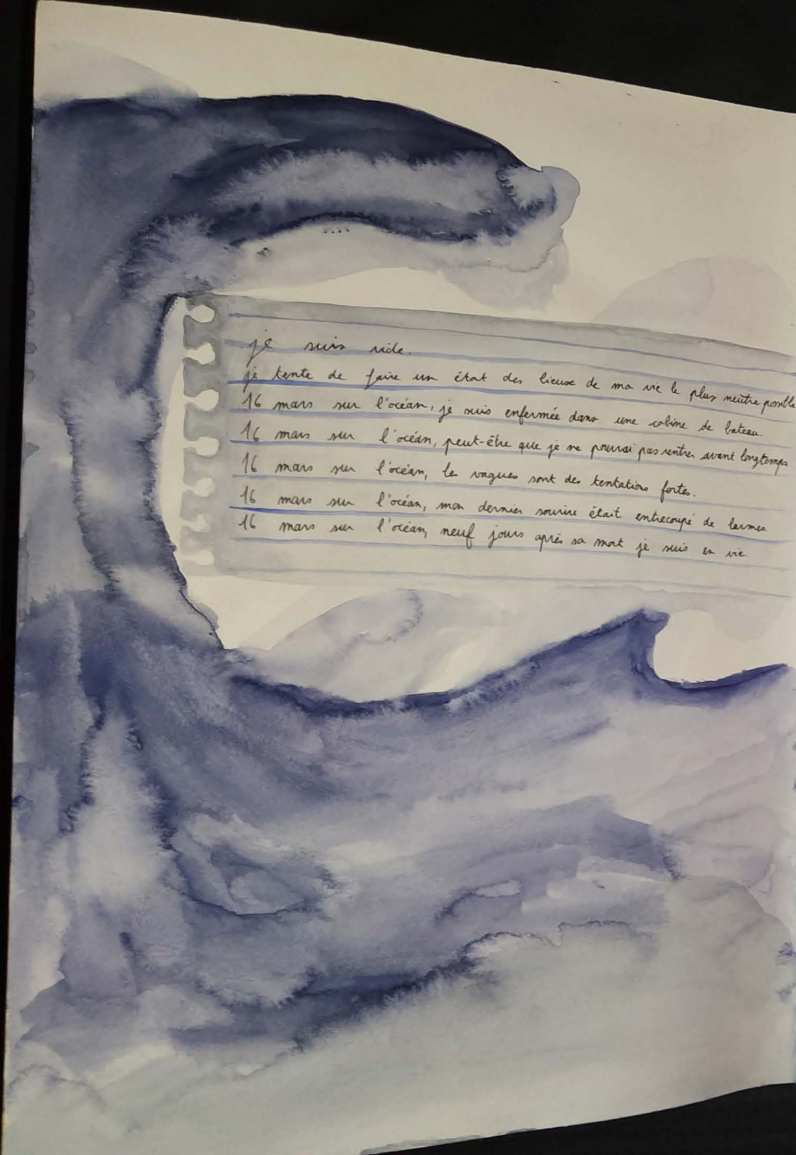 je suis vide.
je tente de faire un état des lieux de ma vie le plus neutre possible
16 mars sur l'océan, je suis enfermée dans une cabine de bateau.
16 mars sur l'océan, peut-être que je ne pourrai pas rentrer avant longtemps
16 mars sur l'océan, les vagues sont des tentations fortes.
16 mars sur l'océan, mon dernier sourire était entrecoupé de larmes
16 mars sur l'océan, neuf jours après sa mort je suis en vie